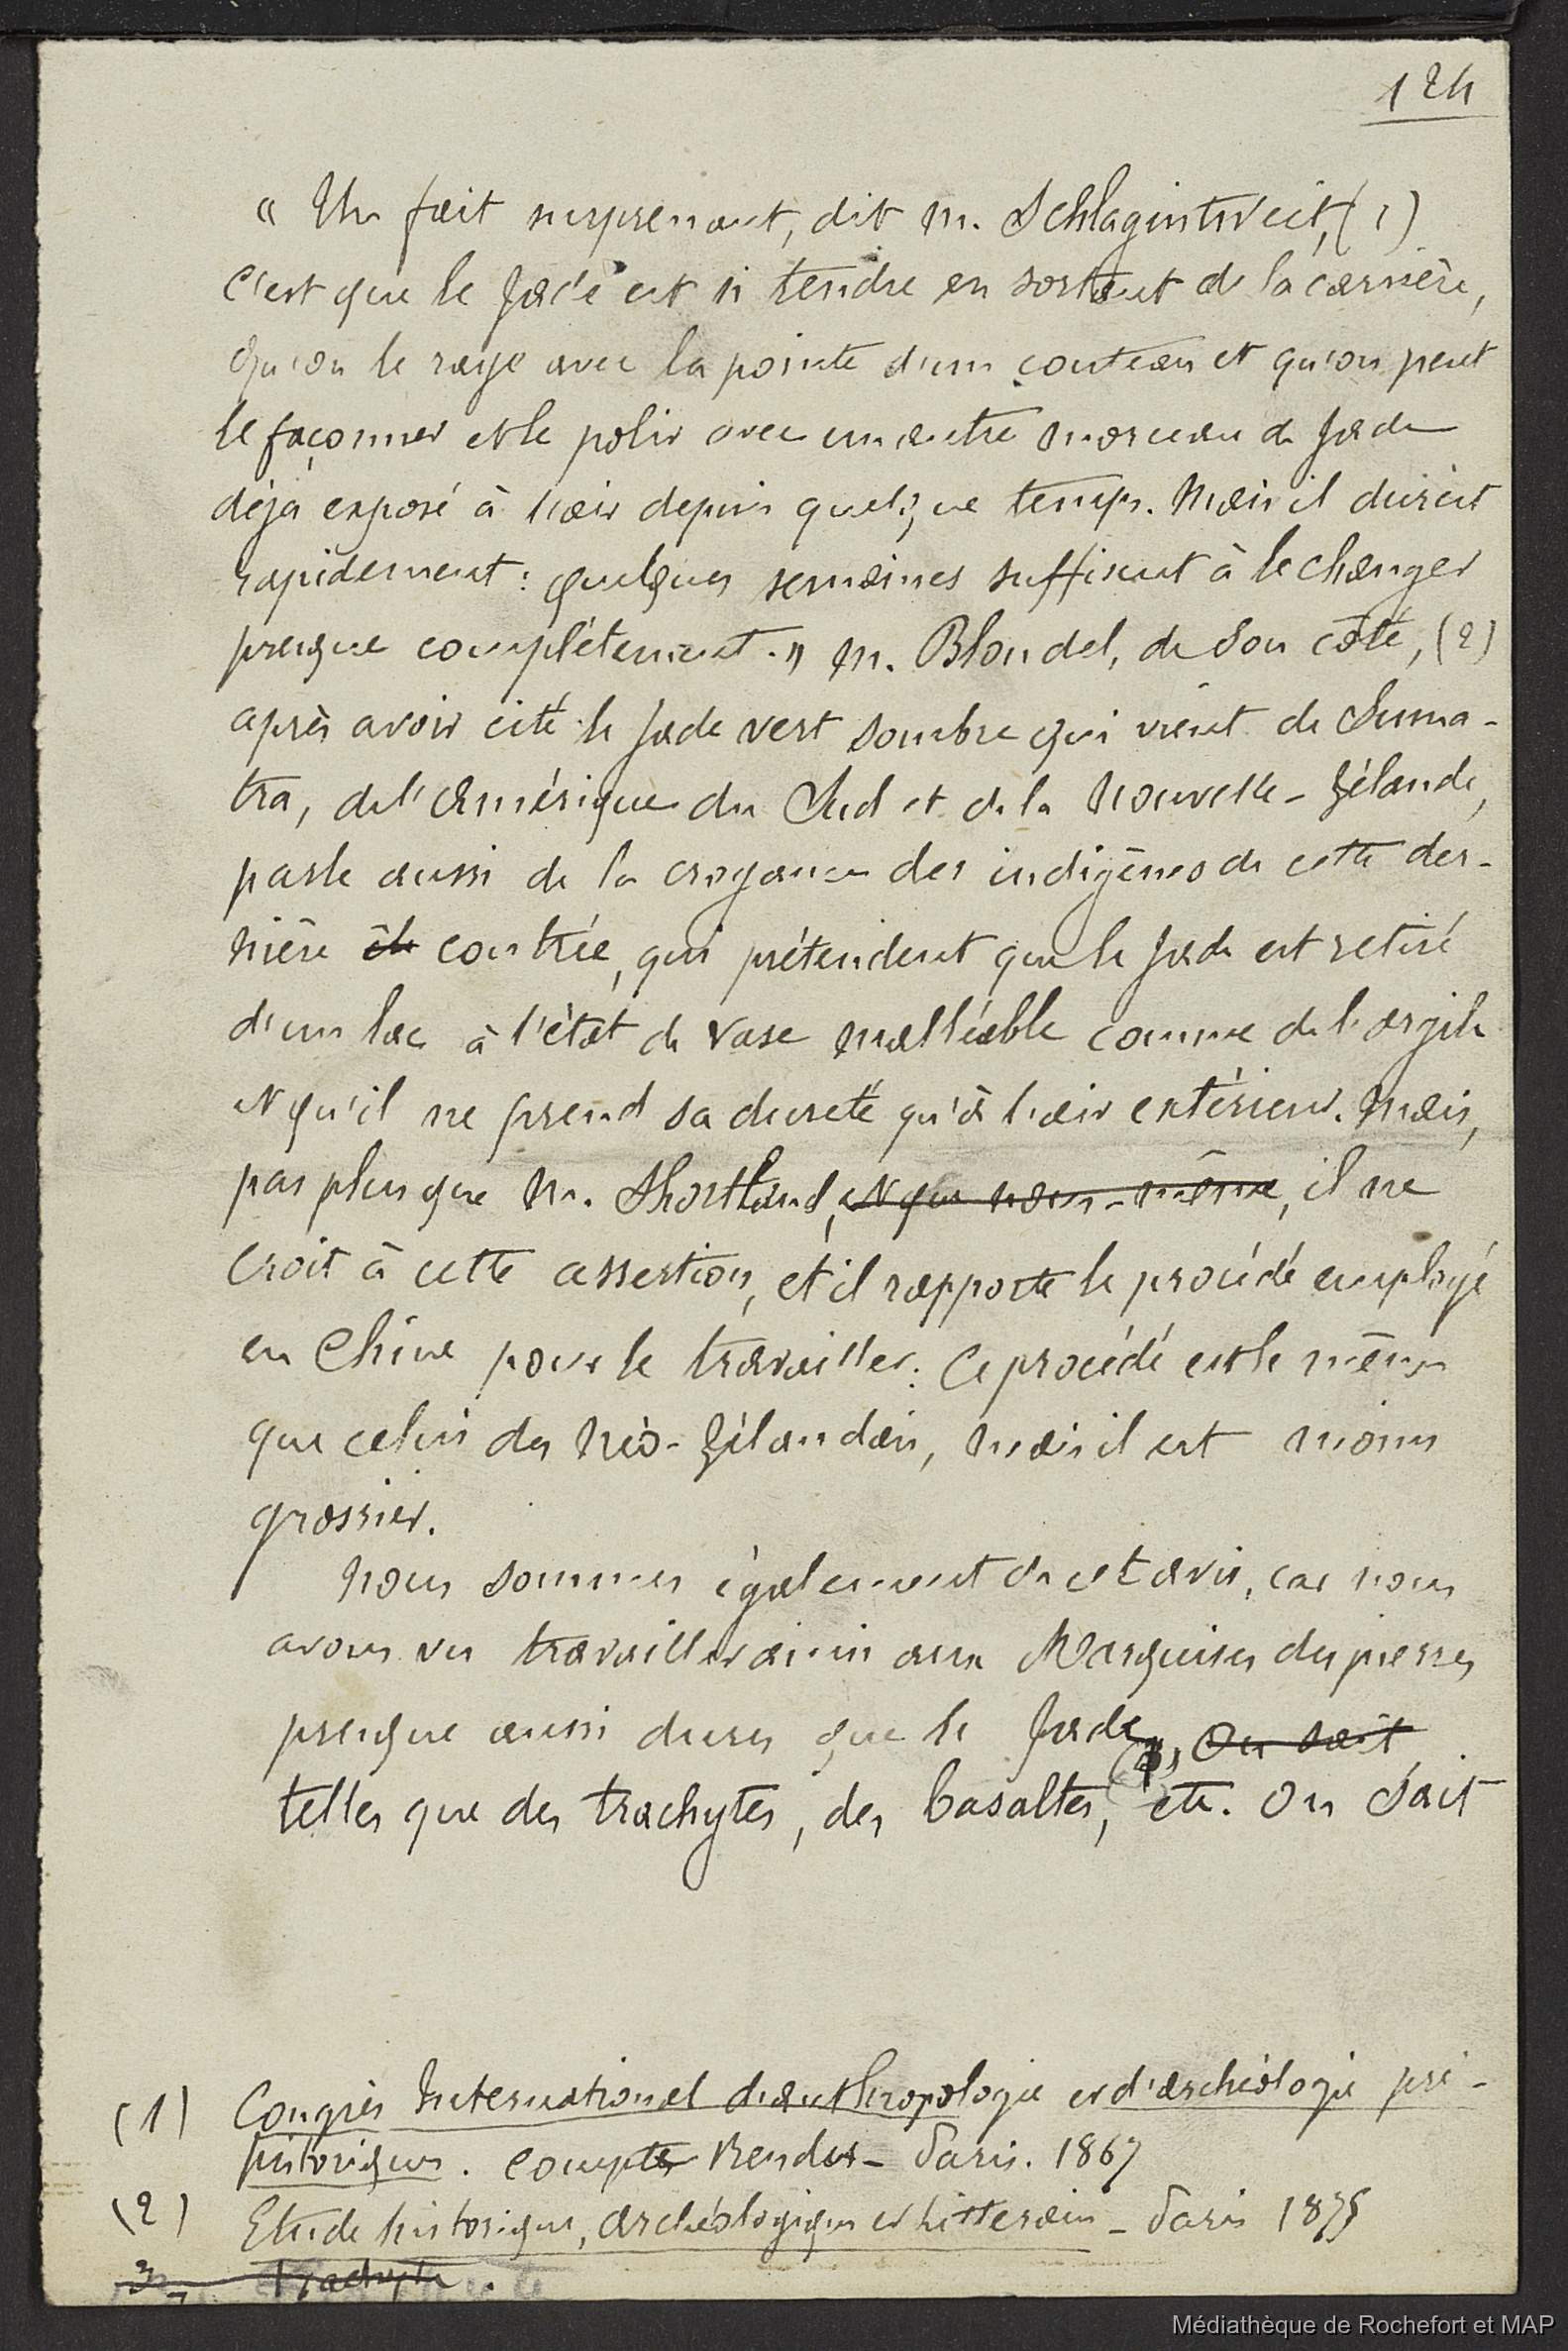 124
« Un fait surprenant, dit M. Schlagintweit, (1)
c'est que le jade est si tendre en sortant de la carrière,
qu'on le raye avec la pointe d'un couteau et qu'on peut
le façonner et le polir avec un autre morceau de jade
déjà exposé à l'air depuis quelque temps. Mais il durcit
rapidement : quelques semaines suffisent à le changer
presque complètement. » M. Blondel, de son côté, (2)
après avoir cité le jade vert sombre qui vient de Suma-
tra, de l'Amérique du Sud et de la Nouvelle-Zélande,
parle aussi de la croyance des indigènes de cette der-
nière île contrée, qui prétendent que le jade est retiré
d'un lac à l'état de vase malléable comme de l'argile
et qu'il ne prend sa dureté qu'à l'air extérieur. Mais,
pas plus que M. Shortland, et que nous-même, il ne
croit à cette assertion, et il rapporte le procédé employé
en Chine pour le travailler. Ce procédé est le même
que celui des Néo-Zélandais, mais il est moins
grossier.
Nous sommes également de cet avis, car nous
avons vu travailler ainsi aux Marquises des pierres
presque aussi dures que le jade, On sait
telles que des trachytes, des basaltes, etc. On sait
(1) Congrès International d'anthropologie et d'archéologie pré-
historiques. Comptes Rendus - Paris. 1867
(2) Etude historique, archéologique et littéraire - Paris 1875
3 Trachyte.
Médiathèque de Rochefort et MAP